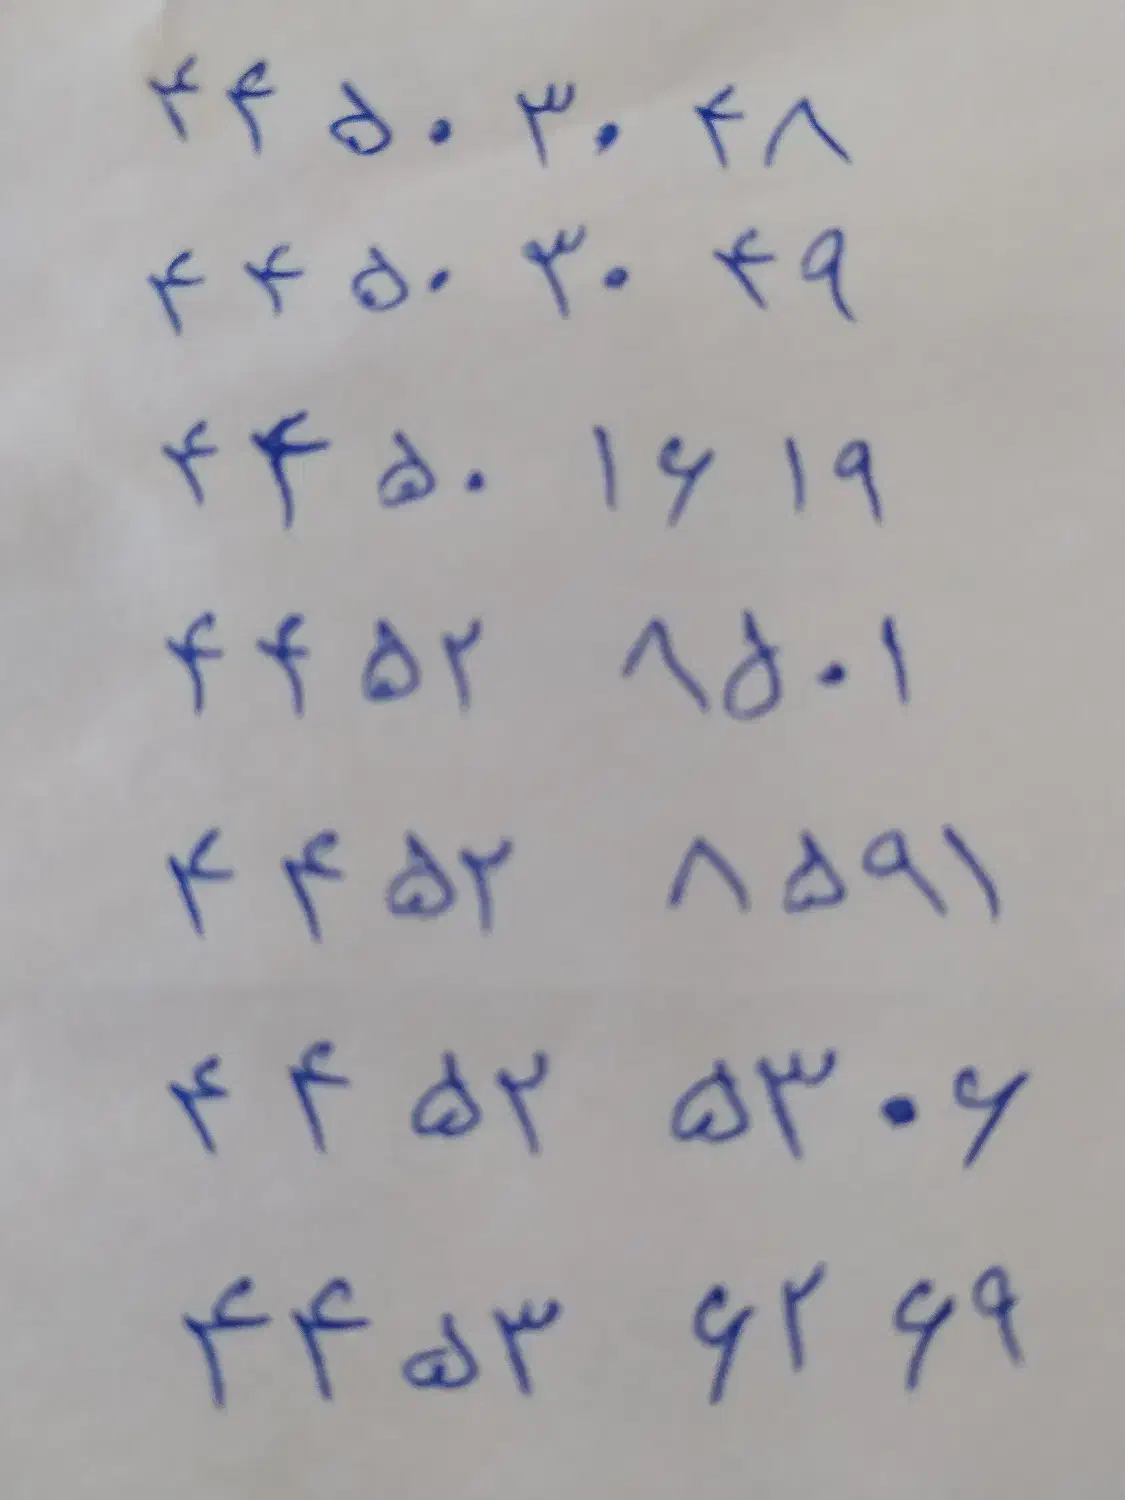 ۴۴۵۰ ۳۰ ۴۸
۴۴۵۰ ۳۰ ۴۹
۴۴۵۰ ۱۶ ۱۹
۴۴۵۲ ۸۵۰۱
۴۴۵۲ ۸۵۹۱
۴۴۵۲ ۵۳۰۶
۴۴۵۳ ۶۲ ۶۹